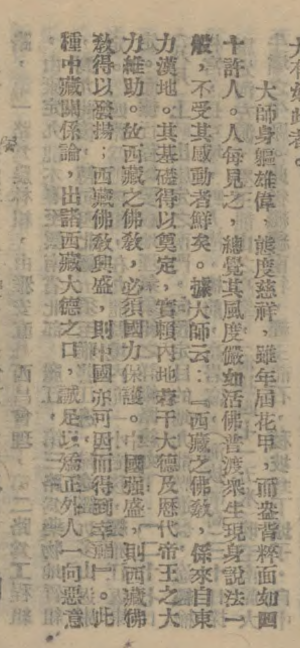 大師身軀雄偉、態度慈祥，雖年屆花甲，而盎背粹面如四
十許人。人每見之，總覺其風度儼如活佛普渡衆生現身說法一
般，不受其感動者鮮矣。據大師云：「西藏之佛教，係來自東
力漢地。其基礎得以奠定，實賴內地若干大德及歷代帝王之大
力維助。故西藏之佛教，必須國力保護。中國強盛，則西藏佛
敎得以發揚；西藏佛敎興盛，則中國亦可因而得到幸福」。此
種中藏關係論，出諸西藏大德之口，誠足以矯正外人一向惡意